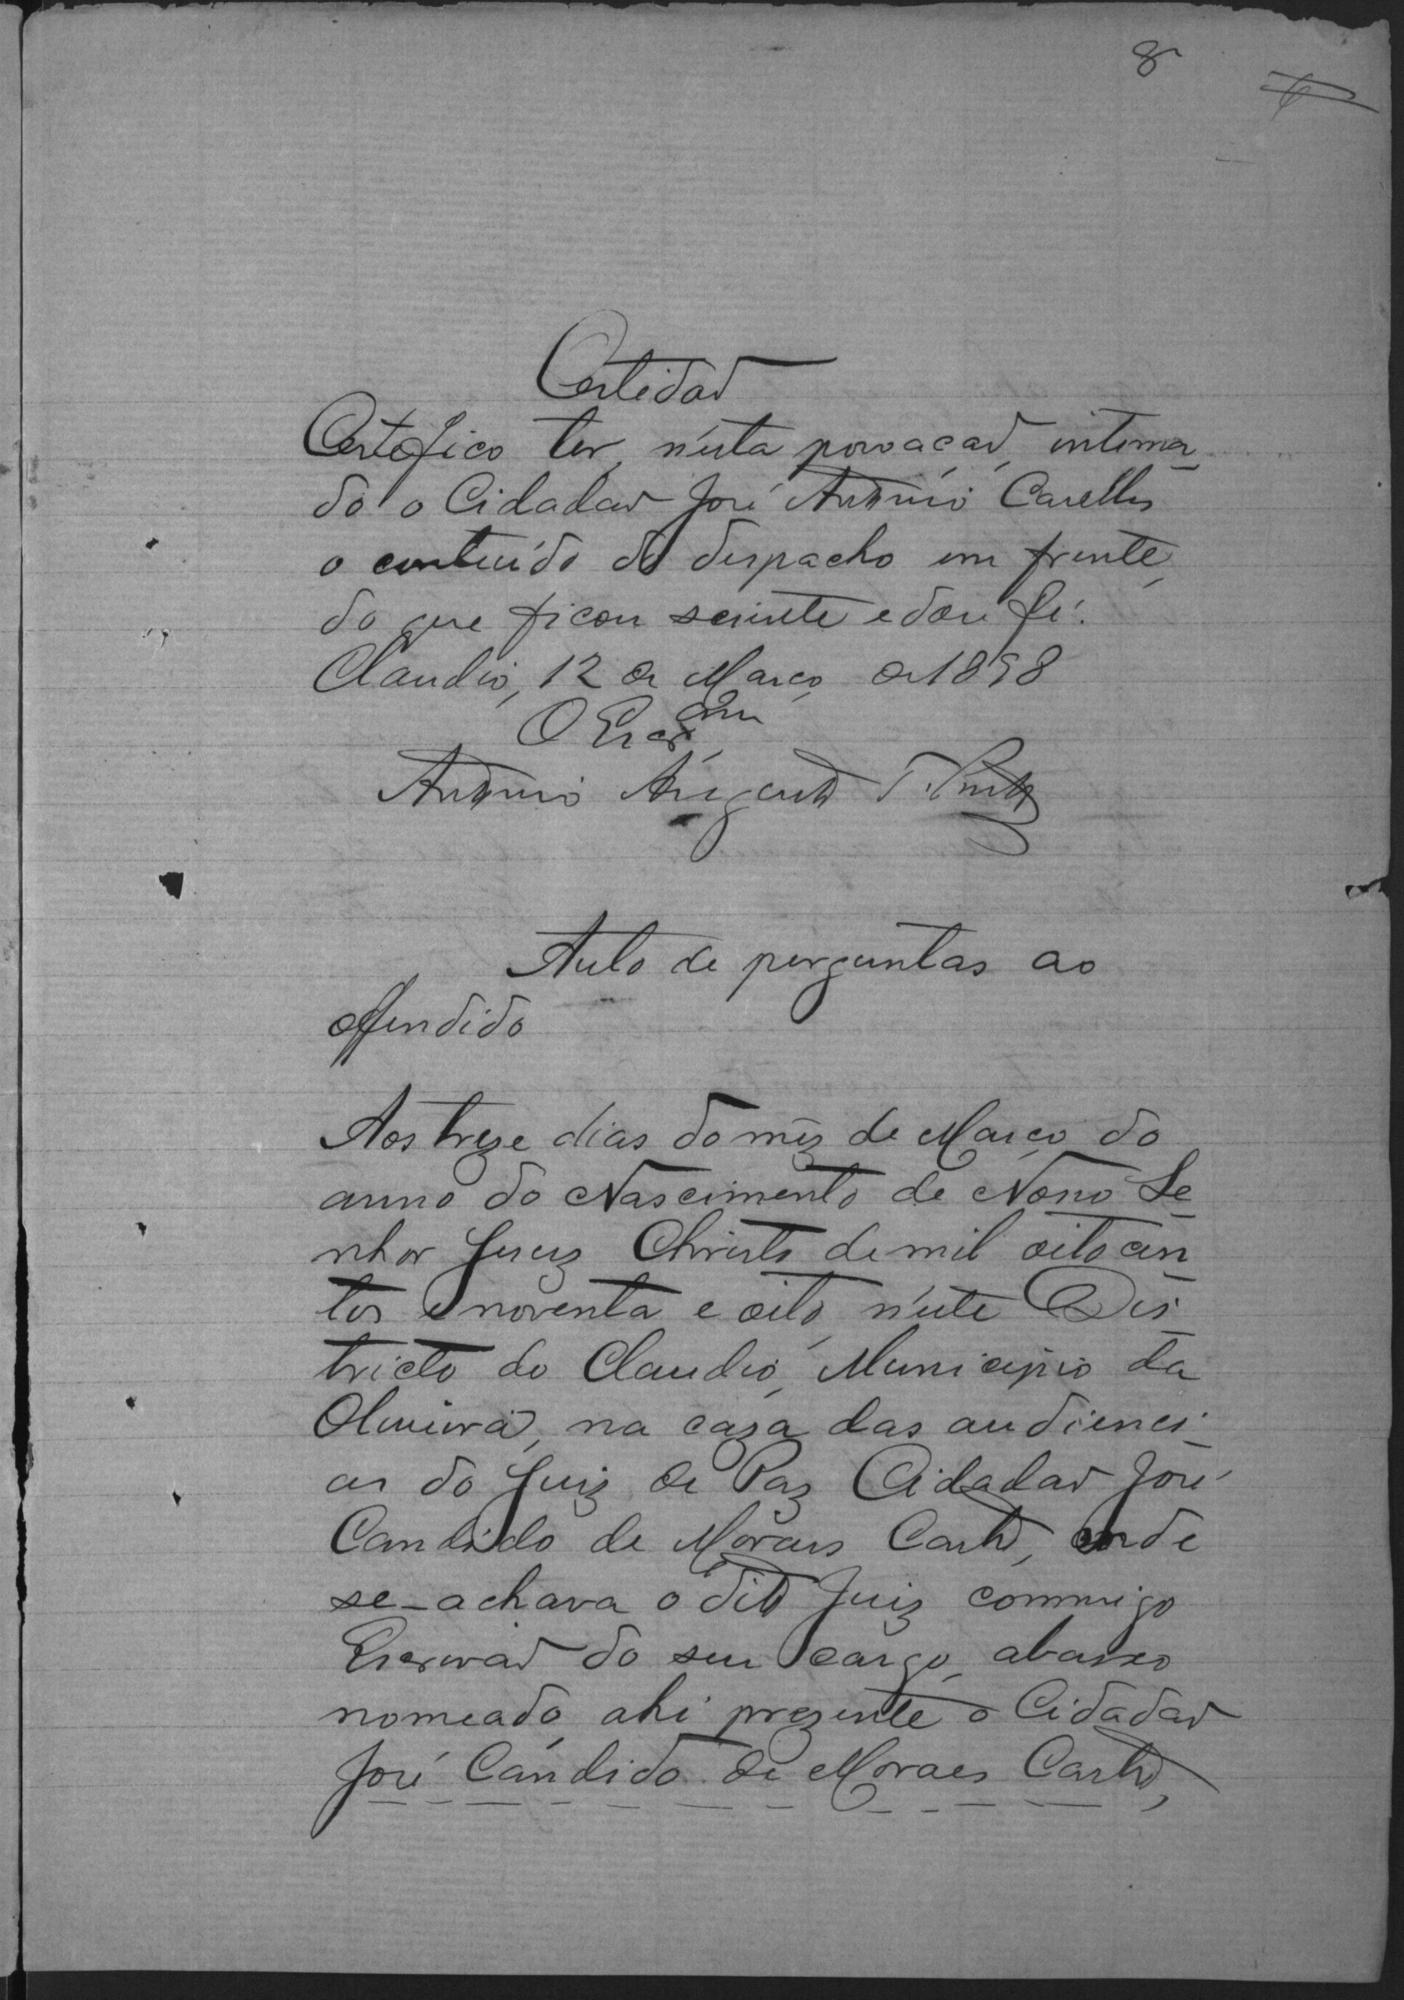 8
Certidaõ
Certifico ter, n'esta povoaçaõ, intima-
do o Cidadaõ José Antonio
o conteúdo do despacho em frente,
do que ficou sciente e dou fé.
Claudio, 12 de Março de 1898
O Escr.am
Antonio Augusto
Auto de perguntas ao
offendido
Aos treze dias do mez de Março do
anno do Nascimento de Nosso Se-
nhor Jesus Christo de mil oitocen-
tos e noventa e oito, n'este Dis-
tricto do Claudio, Municipio da
Oliveira, na caza das audienci-
as do Juiz de Paz Cidadaõ José
Candido de Moraes Castro, onde
se-achava o dito Juiz commigo
Escrivaõ do seu cargo, abaixo
nomeado, ahi prezente o Cidadaõ
José Candido de Moraes Castro,